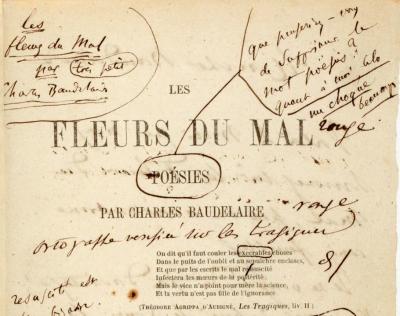 les
fleurs du Mal
par (très petit
Charles Baudelaire
que pensez-vous
de supprimer le
mot poésies ?
quant à moi, cela
me choque
beaucoup
LES
FLEURS DU MAL
rouge
POÉSIES
PAR CHARLES BAUDELAIRE
rouge
ortographe vérifiée sur les tragiques
On dit qu'il faut couler les execrables choses
Dans le puits de l'oubli et au sepulchre encloses,
Et que par les escrits le mal resuscité
Infectera les mœurs de la postérité;
Mais le vice n'a point pour mère la science,
Et la vertu n'est pas fille de l'ignorance
(THÉODORE AGRIPPA D'AUBIGNÉ, Les Tragiques, liv. II)
resuscité est